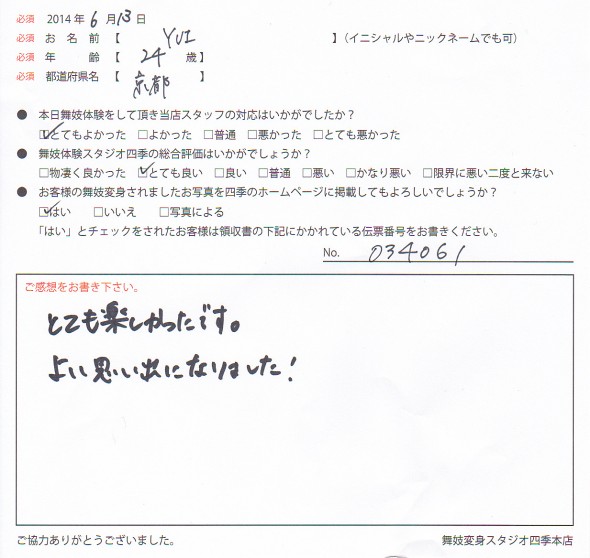 必須 2014年 6 月 13 日
必須 お 名 前 【 YUI 】(イニシャルやニックネームでも可)
必須 年 齢 【 24 歳】
必須 都道府県名 【 京都 】
● 本日舞妓体験をして頂き当店スタッフの対応はいかがでしたか?
☑とてもよかった □よかった □普通 □悪かった □とても悪かった
● 舞妓体験スタジオ四季の総合評価はいかがでしょうか?
□物凄く良かった ☑とても良い □良い □普通 □悪い □かなり悪い □限界に悪い二度と来ない
● お客様の舞妓変身されましたお写真を四季のホームページに掲載してもよろしいでしょうか?
☑はい □いいえ □写真による
「はい」とチェックをされたお客様は領収書の下記にかかれている伝票番号をお書きください。
No. 034061
ご感想をお書き下さい。
とても楽しかったです。
よい思い出になりました!
ご協力ありがとうございました。 舞妓変身スタジオ四季本店